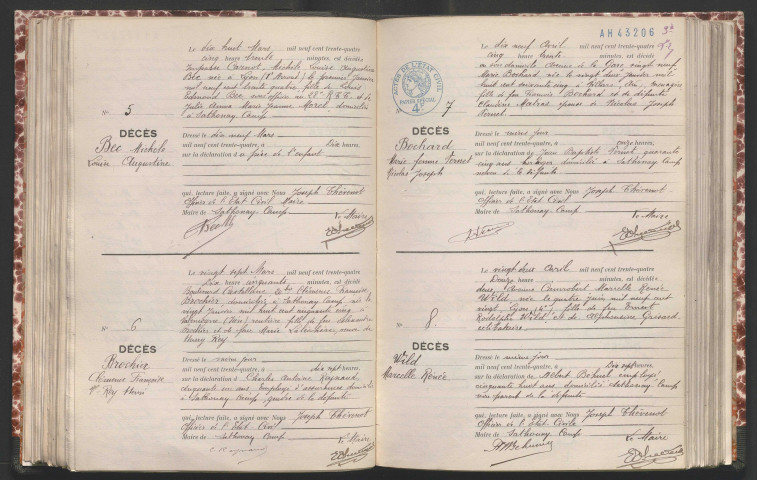 Le dix huit Mars mil neuf cent trente-quatre
cinq heures trente minutes, est décédée
Impasse Carnot, Michèle Louise Augustine
Bec née à Lyon le premier Janvier
mil neuf cent trente quatre fille de Louis
Bec, sous officier au et de
Julie Anna Marie Jeanne Morel domiciliés
à Sathonay Camp
N° 5
DÉCÈS
Bec Michèle
Louise Augustine
Dressé le dix neuf Mars
mil neuf cent trente-quatre, à Dix heures
sur la déclaration de père de l'enfant
qui, lecture faite, a signé avec Nous Joseph Thévenot
Officier de l'Etat Civil Maire
Maire de Sathonay Camp
Le Maire
Le vingt sept Mars mil neuf cent trente-quatre
Dix heures cinquante minutes, est décédée
Boulevard Castellane, Clémence Françoise
Brochier, domiciliée à Sathonay Camp née le
vingt Janvier mil huit cent cinquante cinq à
rentière fille de feu Alexandre
Brochier et de feue Marie veuve de
Henry Rey
N° 6
DÉCÈS
Brochier
Clémence Françoise
Vve Rey Henri
Dressé le même jour
mil neuf cent trente-quatre, à dix sept heures
sur la déclaration de Charles Antoine Raynaud,
cinquante un ans employé d'assurances domicilié
à Sathonay Camp, gendre de la défunte
qui, lecture faite, a signé avec Nous Joseph Thévenot
Officier de l'Etat Civil
Maire de Sathonay Camp
Le Maire
AH43206
ACTES DE L'ÉTAT CIVIL
PAPIER SPÉCIAL
4F
Le dix neuf Avril mil neuf cent trente-quatre
cinq heures trente minutes, est décédée
en son domicile Avenue de la Gare vingt neuf
Marie Bochard née le vingt deux Janvier mil
huit cent soixante cinq à Villars, Ain, ménagère
fille de feu Bochard et de défunte
Claudine épouse de Nicolas Joseph
Vernet
N° 7
DÉCÈS
Bochard
Marie femme Vernet
Nicolas Joseph
Dressé le même jour
mil neuf cent trente-quatre, à onze heures
sur la déclaration de Jean Baptiste Vernet quarante
cinq ans horloger domicilié à Sathonay Camp
neveu de la défunte
qui, lecture faite, a signé avec Nous Joseph Thévenot
Officier de l'Etat Civil
Maire de Sathonay Camp
Le Maire
Le vingt deux Avril mil neuf cent trente-quatre
Douze heures minutes, est décédée
douze, Avenue Canrobert Marcelle Renée
Wild, née le quatre Juin mil neuf cent
vingt, Lyon fille de feu Ernest
Rodolphe Wild et de Alphonsine Grisard
célibataire
N° 8
DÉCÈS
Wild
Marcelle Renée
Dressé le même jour
mil neuf cent trente-quatre, à Dix sept heures
sur la déclaration de Albert employé
cinquante huit ans domicilié Sathonay Camp
non parent de la défunte
qui, lecture faite, a signé avec Nous Joseph Thévenot
Officier de l'Etat Civile
Maire de Sathonay Camp
Le Maire